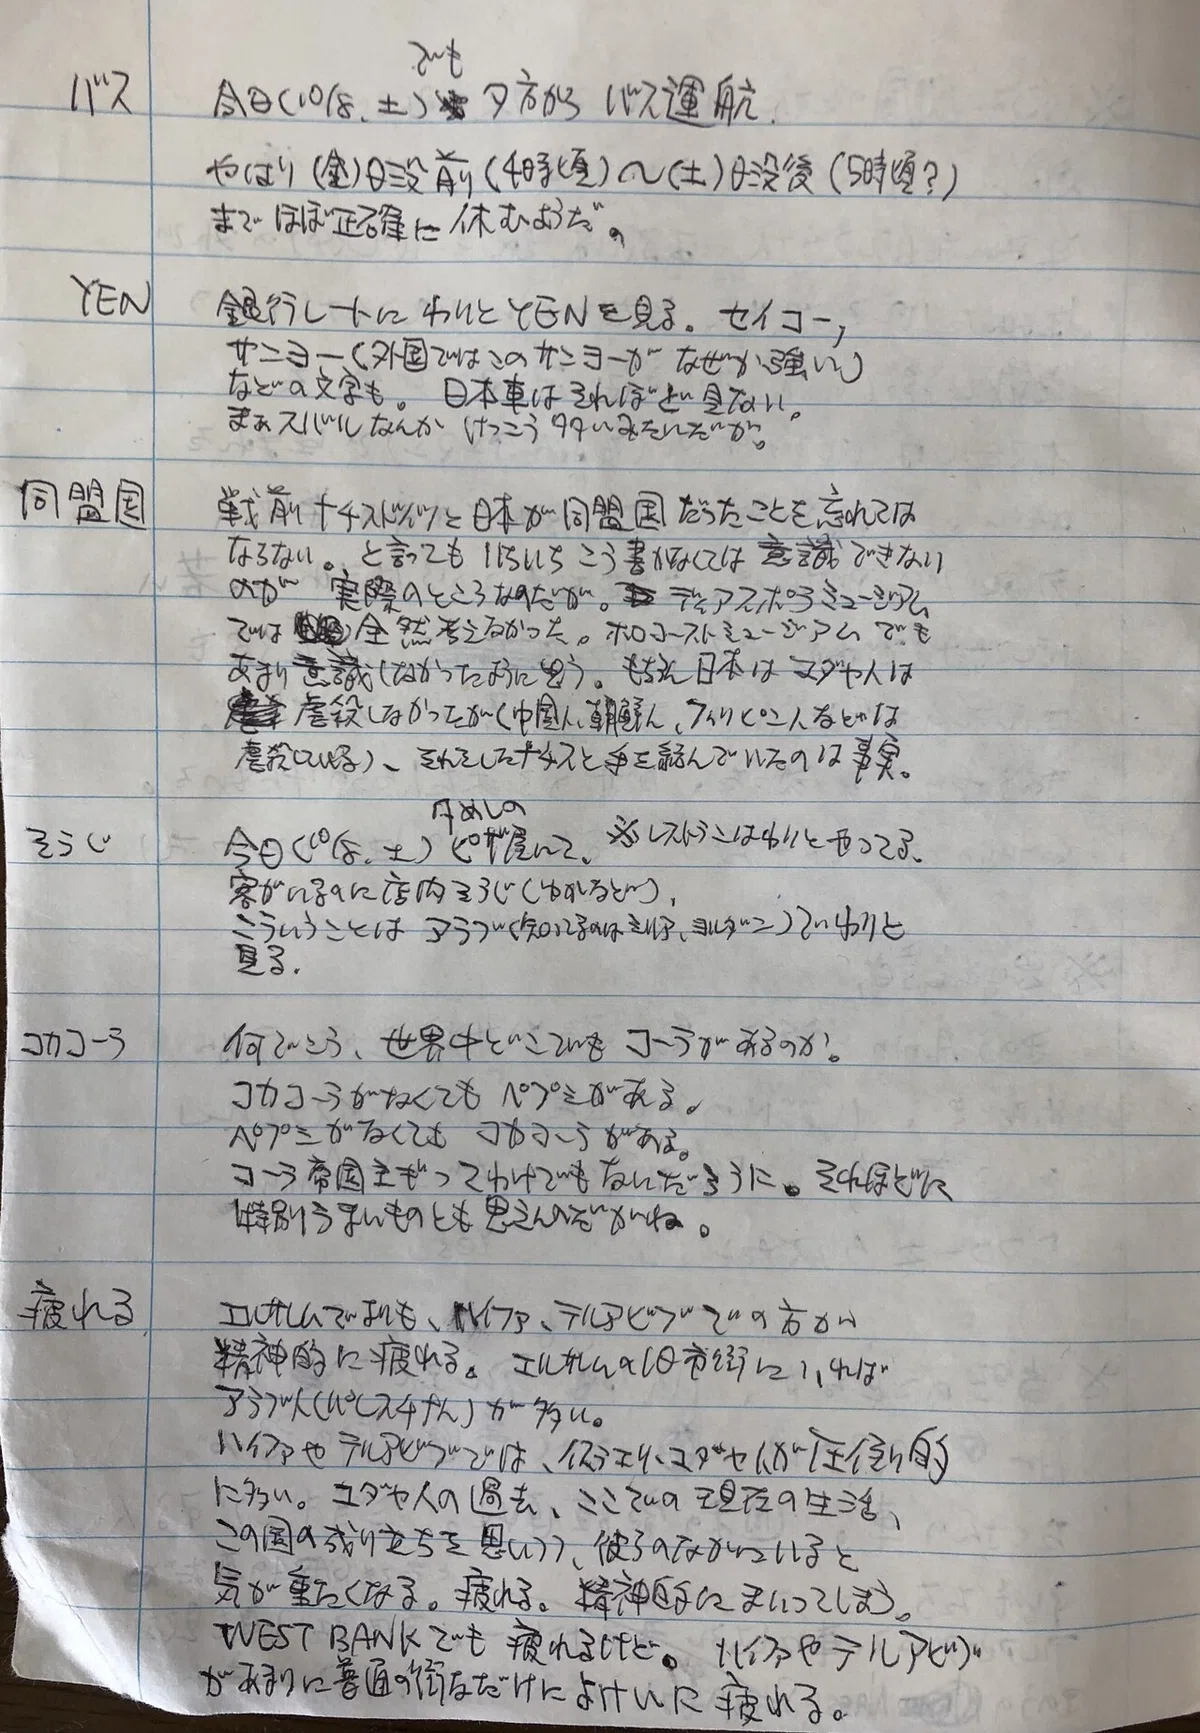 バス
でも
今日(10/8.土) 夕方から バス運航.
やはり(金)日没前(4時頃)〜(土)日没後(5時頃?)
まで ほぼ正確に 休むようだ。
YEN
銀行レートに わりと YENを見る。セイコー,
サンヨー(外国ではこのサンヨーが なぜか強い)
などの文字も。 日本車は それほど 見ない。
まぁスバルなんか けっこう 多いみたいだが。
同盟国
戦前ナチスドイツと日本が同盟国だったことを忘れては
ならない。と言っても いちいち こう書かなくては 意識できない
のが 実際のところなのだが。ディアスポラミュージアム
では 全然考えなかった。ホロコーストミュージアム でも
あまり意識しなかったように思う。もちろん日本は ユダヤ人は
虐殺しなかったが(中国人、朝鮮人、フィリピン人などは
虐殺している)、それをしたナチスと手を結んでいたのは事実。
そうじ
夕めしの
今日(10/8.土) ピザ屋にて、※レストランはわりとやってる.
客がいるのに店内そうじ(ゆかなど).
こういうことは アラブ(知ってるのはシリア、ヨルダン)でわりと
見る.
コカコーラ
何でこう、世界中どこでも コーラがあるのか。
コカコーラがなくても ペプシがある。
ペプシがなくても コカコーラがある。
コーラ帝国主ギってわけでもないだろうに。それほどに
特別うまいものとも思えんのだがね。
疲れる
エルサレムでよりも、ハイファ、テルアビブでの方が
精神的に疲れる。エルサレムの旧市街にいれば
アラブ人(パレスチナ人)が多い。
ハイファやテルアビブでは、イスラエリ、ユダヤ人が圧倒的
に多い。ユダヤ人の過去、ここでの現在の生活、
この国の成り立ちを思いつつ、彼らのなかにいると
気が重たくなる。疲れる。精神的にまいってしまう。
WEST BANKでも 疲れるけど。 ハイファやテルアビブ
があまりに普通の街なだけに よけいに 疲れる。